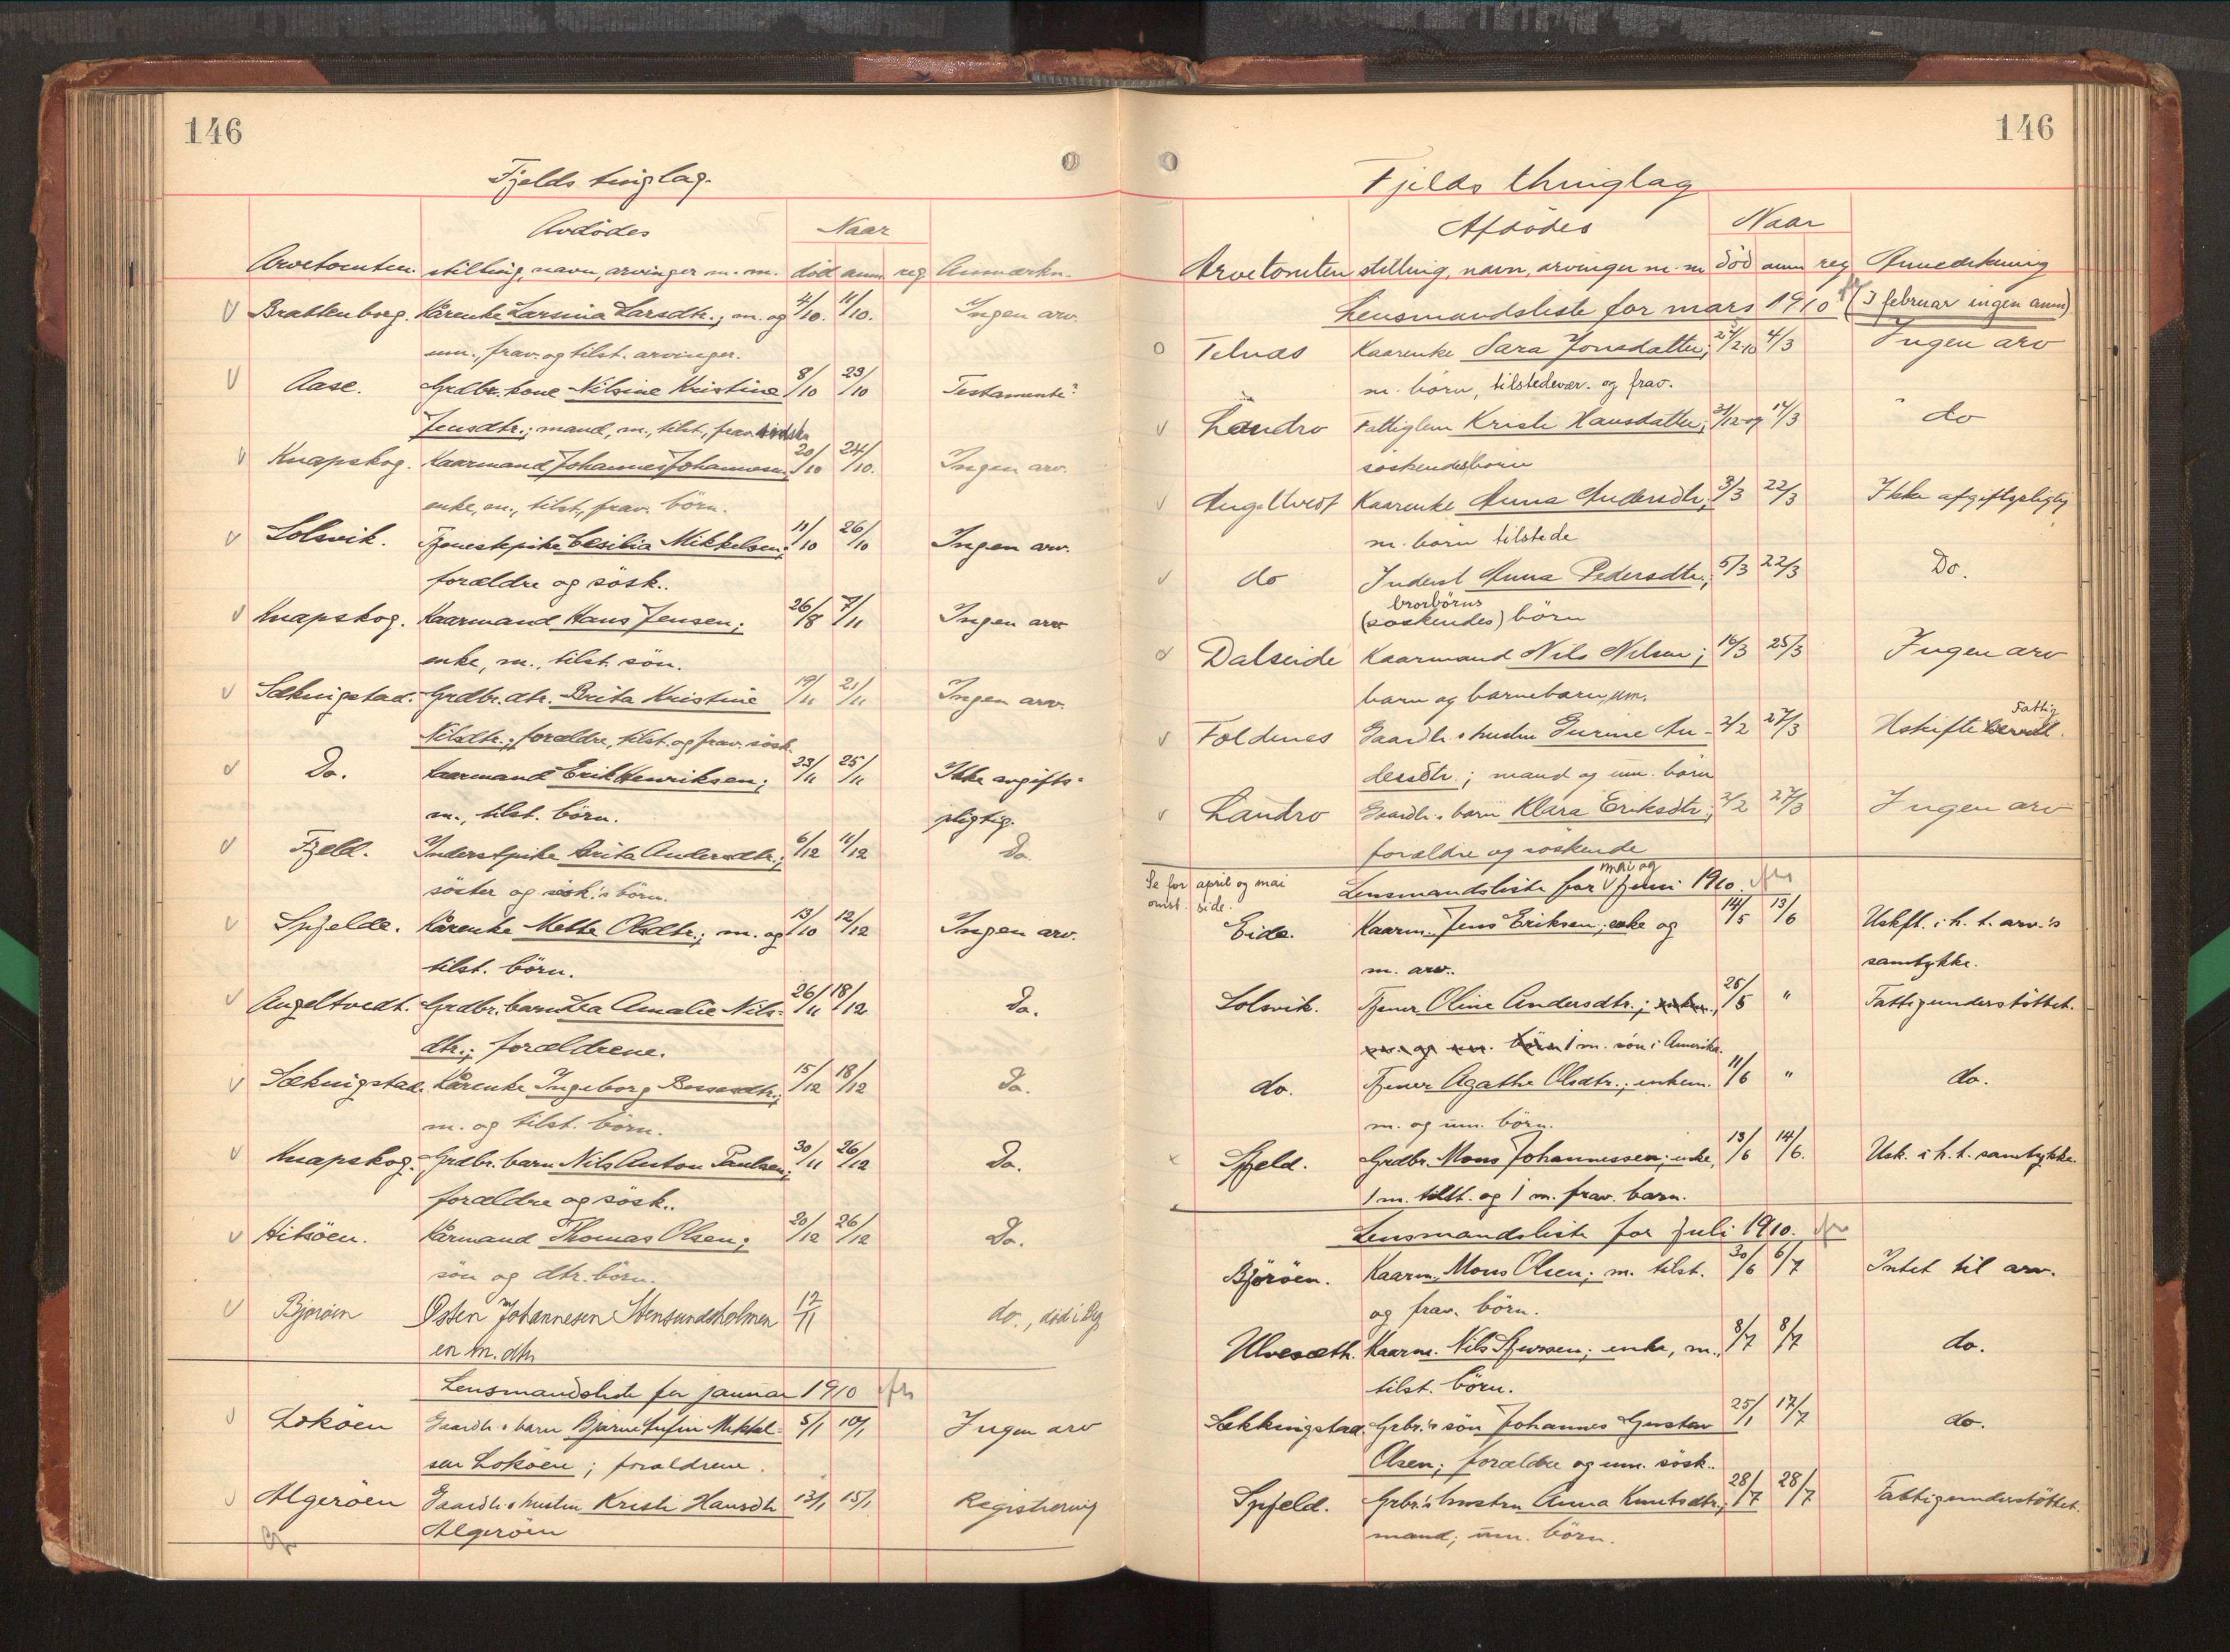 146
Fjelds tinglag.
Avdödes
Naar
Arvetomten. stilling, navn, arvinger m. m. död anm. reg. Anmærkn.
Brattenborg. Kårenke Larsina Larsdtr.; m. og 4/10. 11/10. Ingen arv.
um., frav. og tilst. arvinger.
Aase. Grdbr. kone Nilsine Kristine 8/10 23/10 Testamente?
Jensdtr.; mand, m., tilst., frav.
Knapskog. Kaarmand Johannes Johannesen; 20/10 24/10. Ingen arv.
enke, m., tilst., frav. börn.
Solsvik. Tjenestepike Cesilia Mikkelsen; 11/10 26/10 Ingen arv.
forældre og sösk..
Knapskog. Kaarmand Hans Jensen; 26/8 7/11 Ingen arv
enke, m., tilst. sön.
Sekkingstad. Grdbr. dtr. Brita Kristine 19/11 21/11 Ingen arv.
Nilsdtr.; forældre, tilst. og frav. sösk.
Do. Kaarmand Erik Henriksen; 23/11 25/11 Ikke avgifts-
m., tilst. börn. pligtig.
Fjeld. Inderstpike Brita Andersdtr.; 6/12 11/12 Do.
söster og sösk.'s börn.
Spjelde. Kårenke Mette Olsdtr.; m. og 13/10 12/12 Ingen arv.
tilst. börn.
Angeltvedt. Grdbr. barn Lea Amalie Nils- 26/11 18/12 Do.
dtr.; forældrene.
Sekkingstad. Kårenke Ingeborg 15/12 18/12 Do.
m. og tilst. börn.
Knapskog. Grdbr. barn Nils Anton Paulsen; 30/11 26/12 Do.
forældre og sösk..
Hitsöen. Kårmand Thomas Olsen; 20/12 26/12 Do.
sön og dtr. börn.
Bjoröin Østen Johannesen Stensundsholmen 12/11 do., död i Bg
en m. dtr
Lensmandsliste for januar 1910
Loköen Gaardbr.s barn Bjarne Mikkel- 5/1 10/1 Ingen arv
sen Loköen; forældrene.
Algeröen Gaardbr.s hustru Kristi Hansdtr 13/1 15/1 Registrering
Algeröen
146
Fjelds thinglag
Afdödes
Naar
Arvetomten stilling, navn, arvinger m. m död anm reg Anmerkning
Lensmandsliste for mars 1910 (I februar ingen anm)
Telnæs Kaarenke Sara Jonsdatter; 21/2-10 4/3 Ingen arv
m. börn, tilstedevær. og frav.
Landro Fattiglem Kristi Hansdatter; 31/12-09 17/3 do
söskendesbörn
Angeltvedt Kaarenke Anna Andersdtr; 3/3 22/3 Ikke afgiftspligtig
m. börn tilstede
do Inderst Anna Pedersdtr; 5/3 22/3 Do.
brorbörns
(söskendes) börn
Dalseide Kaarmand Nils Nilsen; 16/3 25/3 Ingen arv
barn og barnebarn, um.
Foldnes Gaardbr.s hustru Gurine An- 2/2 27/3 Uskifte Fattig
dersdtr.; mand og um. börn
Landro Gaardbr.s barn Klara Eriksdtr; 2/2 27/3 Ingen arv
forældre og söskende
Se for april og mai
omst. side.
mai og
Lensmandsliste for juni 1910.
Eide. Kaarm. Jens Eriksen; enke og 14/5 13/6 Uskft. i h. t. arv.'s
m. arv.. samtykke.
Solsvik. Tjener Oline Andersdtr.; 25/5 " Fattigunderstöttet.
1 m. sön i Amerika.
do. Tjener Agathe Olsdtr.; enkem. 11/6 " do.
m. og um. börn.
Spjeld. Grdbr. Mons Johannessen; enke, 13/6 14/6. Usk. i h. t. samtykke.
1 m. tilst. og 1 m. frav. barn.
Lensmandsliste for juli 1910.
Björöen. Kaarm. Mons Olsen; m. tilst. 30/6 6/7 Intet til arv.
og frav. börn.
Ulvesæth. Kaarm. Nils Sjursen; enke, m., 8/7 8/7 do.
tilst. börn.
Sekkingstad. Grbr.'s sön Johannes Gustav 25/1 17/7 do.
Olsen; forældre og um. sösk..
Spjeld. Grbr.'s hustru Anna Knutsdtr.; 28/7 28/7 Fattigunderstöttet.
mand; um. börn.